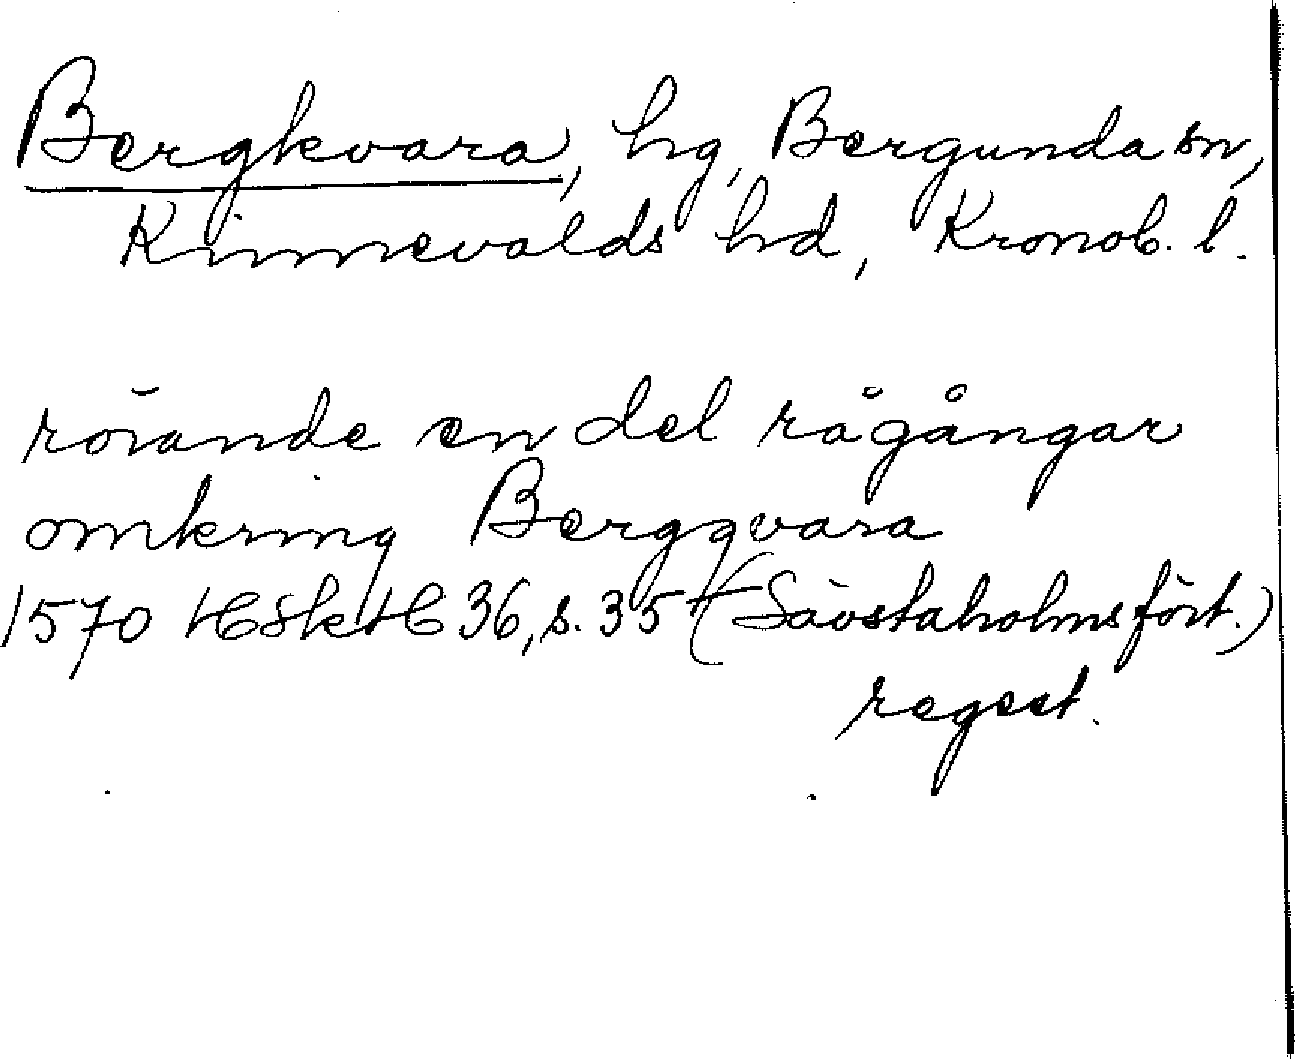 Bergkvara, hg, Bergunda sn,
Kinnevalds hd, Kronob. l.
rörande en del rågångar
omkring Bergqvara
1570 HSkH 36, s. 35 (Sävstaholms fört.)
regest.